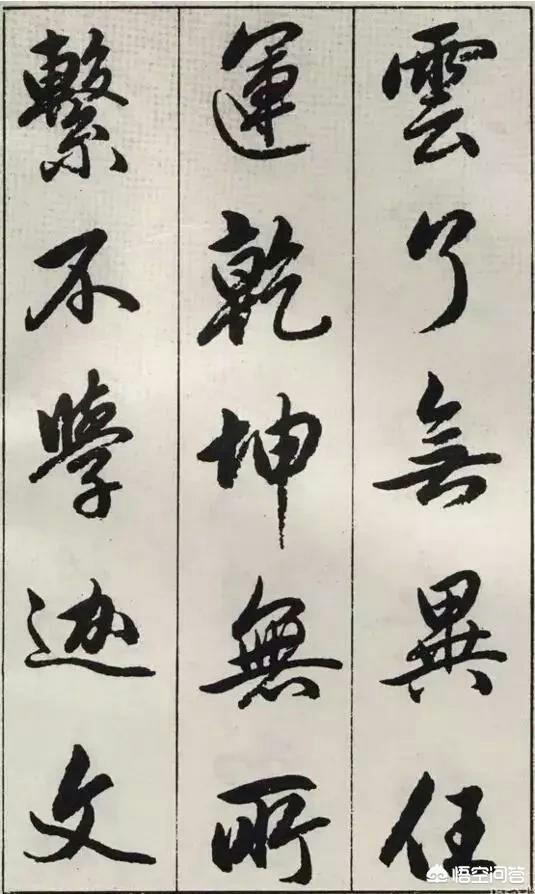 雲了無異任
運乾坤無所
繫不學文
悟空问答